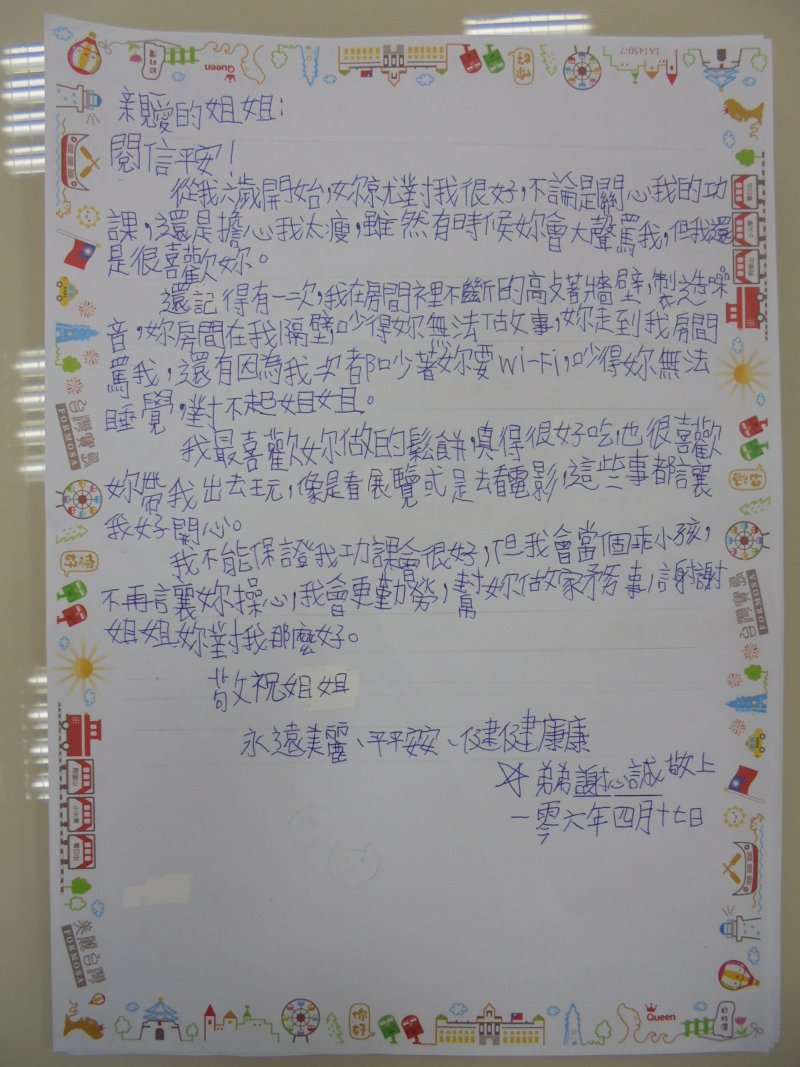 IA1450-7
Queen
你好
親愛的姐姐:
閱信平安!
從我六歲開始,妳就對我很好,不論是關心我的功
課,還是擔心我太瘦,雖然有時候妳會大聲罵我,但我還
是很喜歡妳。
還記得有一次,我在房間裡不斷的高敲著牆壁,製造噪
音,妳房間在我隔壁,吵得妳無法做事,妳走到我房間
罵我,還有因為我次都吵著妳要Wi-Fi,吵得妳無法
睡覺,對不起姐姐。
我最喜歡妳做的鬆餅,真得很好吃,也很喜歡
妳帶我出去玩,像是看展覽或是去看電影,這些事都讓
我好開心。
我不能保證我功課會很好,但我會當個乖小孩,
不再讓妳操心,我會更勤勞,幫妳做家務事,謝謝
姐姐妳對我那麼好。
敬祝姐姐
永遠美麗、平平安安、健健康康
弟弟謝心誠敬上
一零六年四月十七日
台灣寶島
FORMOSA
台灣寶島
FORMOSA
美麗台灣
FORMOSA
阿里山
小火車
看日出
你好
Queen
日月潭